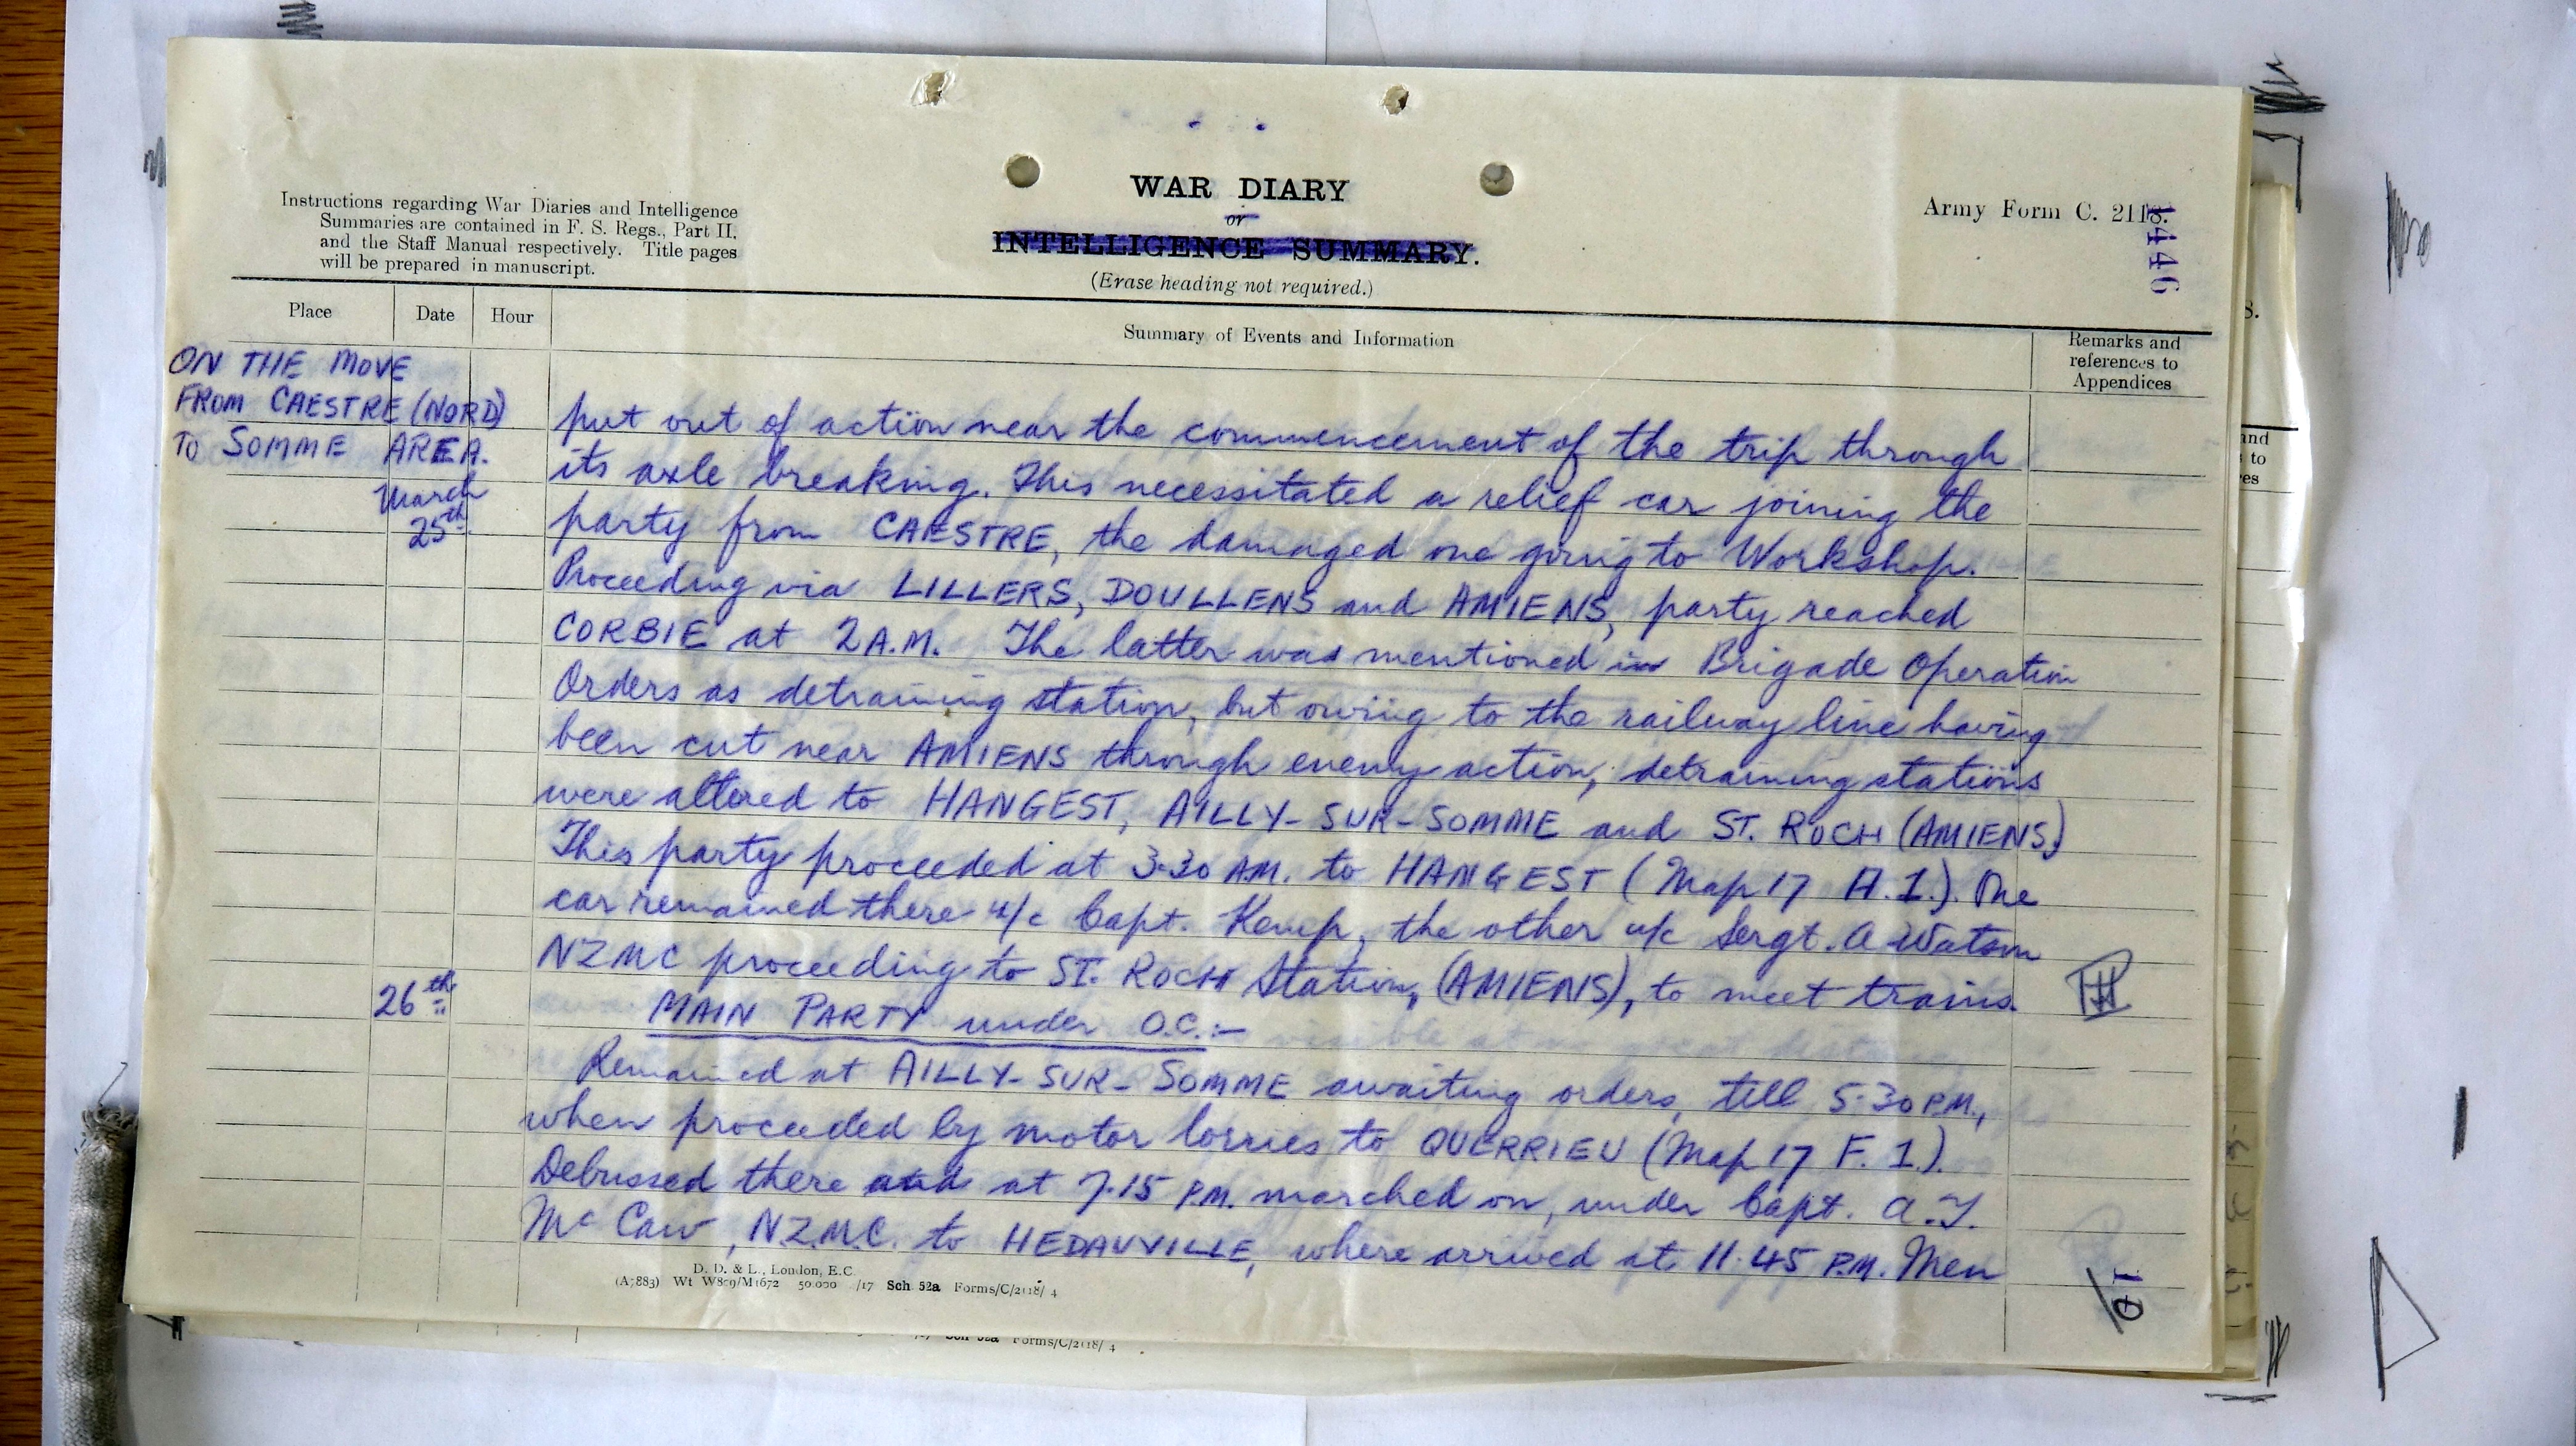 Instructions regarding War Diaries and Intelligence
Summaries are contained in F. S. Regs., Part II,
and the Staff Manual respectively. Title pages
will be prepared in manuscript.
WAR DIARY
or
INTELLIGENCE SUMMARY.
(Erase heading not required.)
Army Form C. 2118.
1446
Place
Date
Hour
Summary of Events and Information
Remarks and
references to
Appendices
ON THE MOVE
FROM CAESTRE (NORD)
TO SOMME AREA.
March
25th
put out of action near the commencement of the trip through
its axle breaking. This necessitated a relief car joining the
party from CAESTRE, the damaged one going to Workshop.
Proceeding via LILLERS, DOULLENS and AMIENS, party reached
CORBIE at 2 A.M. The latter was mentioned in Brigade Operation
Orders as detraining station, but owing to the railway line having
been cut near AMIENS through enemy action, detraining stations
were altered to HANGEST, AILLY-SUR-SOMME and ST. ROCH (AMIENS)
This party proceeded at 3.30 AM. to HANGEST (Map 17 A.1.). One
car remained there u/c Capt. Kemp, the other u/c Sergt. A Watson
NZMC proceeding to ST. ROCH Station, (AMIENS), to meet trains.
26th
MAIN PARTY under O.C.:-
Remained at AILLY-SUR-SOMME awaiting orders, till 5.30 P.M.,
when proceeded by motor lorries to QUERRIEU (Map 17 F. 1.).
Debussed there and at 7.15 P.M. marched on, under Capt. A.T.
McCaw, N.Z.M.C. to HEDAUVILLE, where arrived at 11.45 P.M. Men
D. D. & L., London, E.C.
(A7883) Wt W809/M1672 50.000 /17 Sch 52a Forms/C/2118/4
10
Sch 52a Forms/C/2118/4